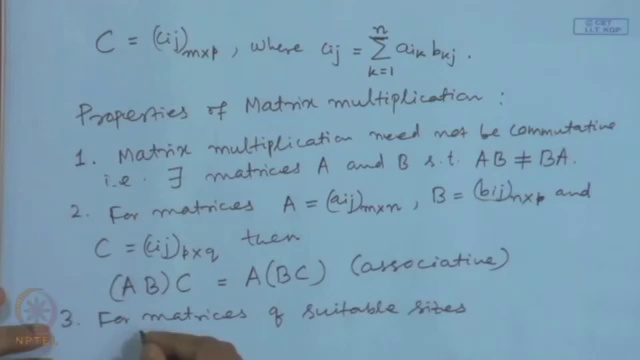 © CET
I.I.T. KGP
C = (cij)m×p, where cij = ∑_{k=1}^{n} aik bkj.
Properties of Matrix multiplication:
1. Matrix multiplication need not be commutative
i.e. ∃ matrices A and B s.t. AB ≠ BA.
2. For matrices A = (aij)m×n, B = (bij)n×p and
C = (cij)p×q then
(AB)C = A(BC) (associative)
3. For matrices of suitable sizes
NPTEL